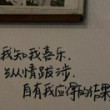 我知我喜乐,
纵情跋涉,
自有我应得的结果